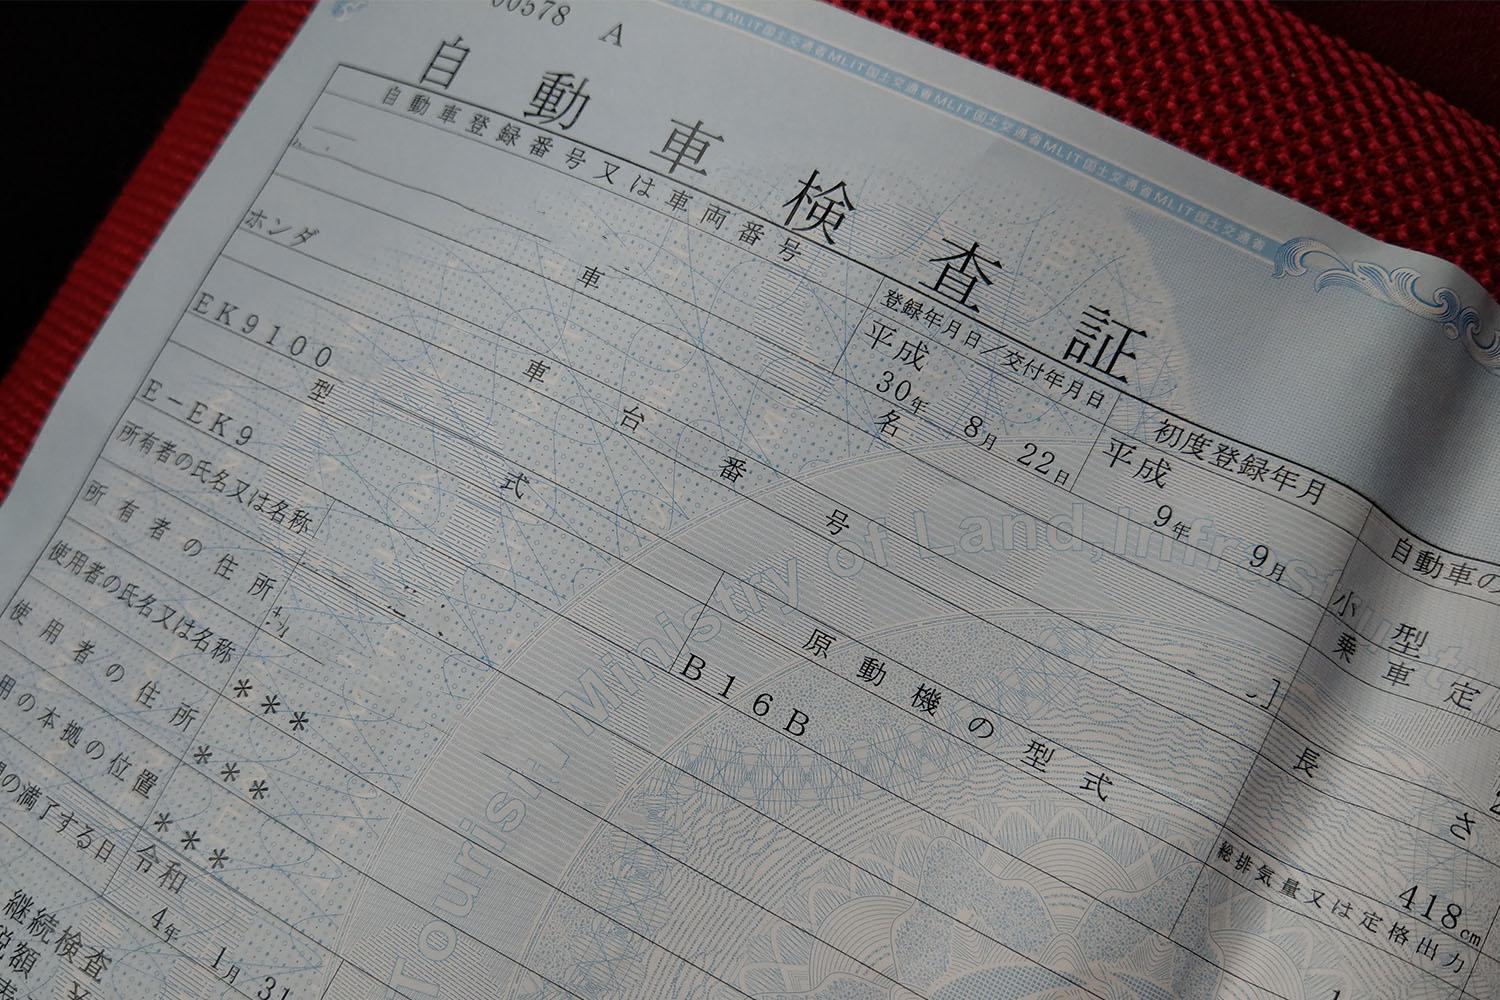 00578 A
MLIT国土交通省MLIT国土交通省MLIT国土交通省MLIT国土交通省MLIT国土交通省MLIT国土交通省
自動車検査証
自動車登録番号又は車両番号
登録年月日/交付年月日
初度登録年月
自動車の
平成
30年 8月 22日
平成
9年 9月
小型
車名
乗車定
ホンダ
車台番号
長さ
EK9100
418cm
型式
原動機の型式
総排気量又は定格出力
E-EK9
B16B
所有者の氏名又は名称
所有者の住所
使用者の氏名又は名称
***
使用者の住所
***
用の本拠の位置
***
の満了する日
令和
4年 1月 31
継続検査
税額
Ministry of Land,Infrast
Tourism